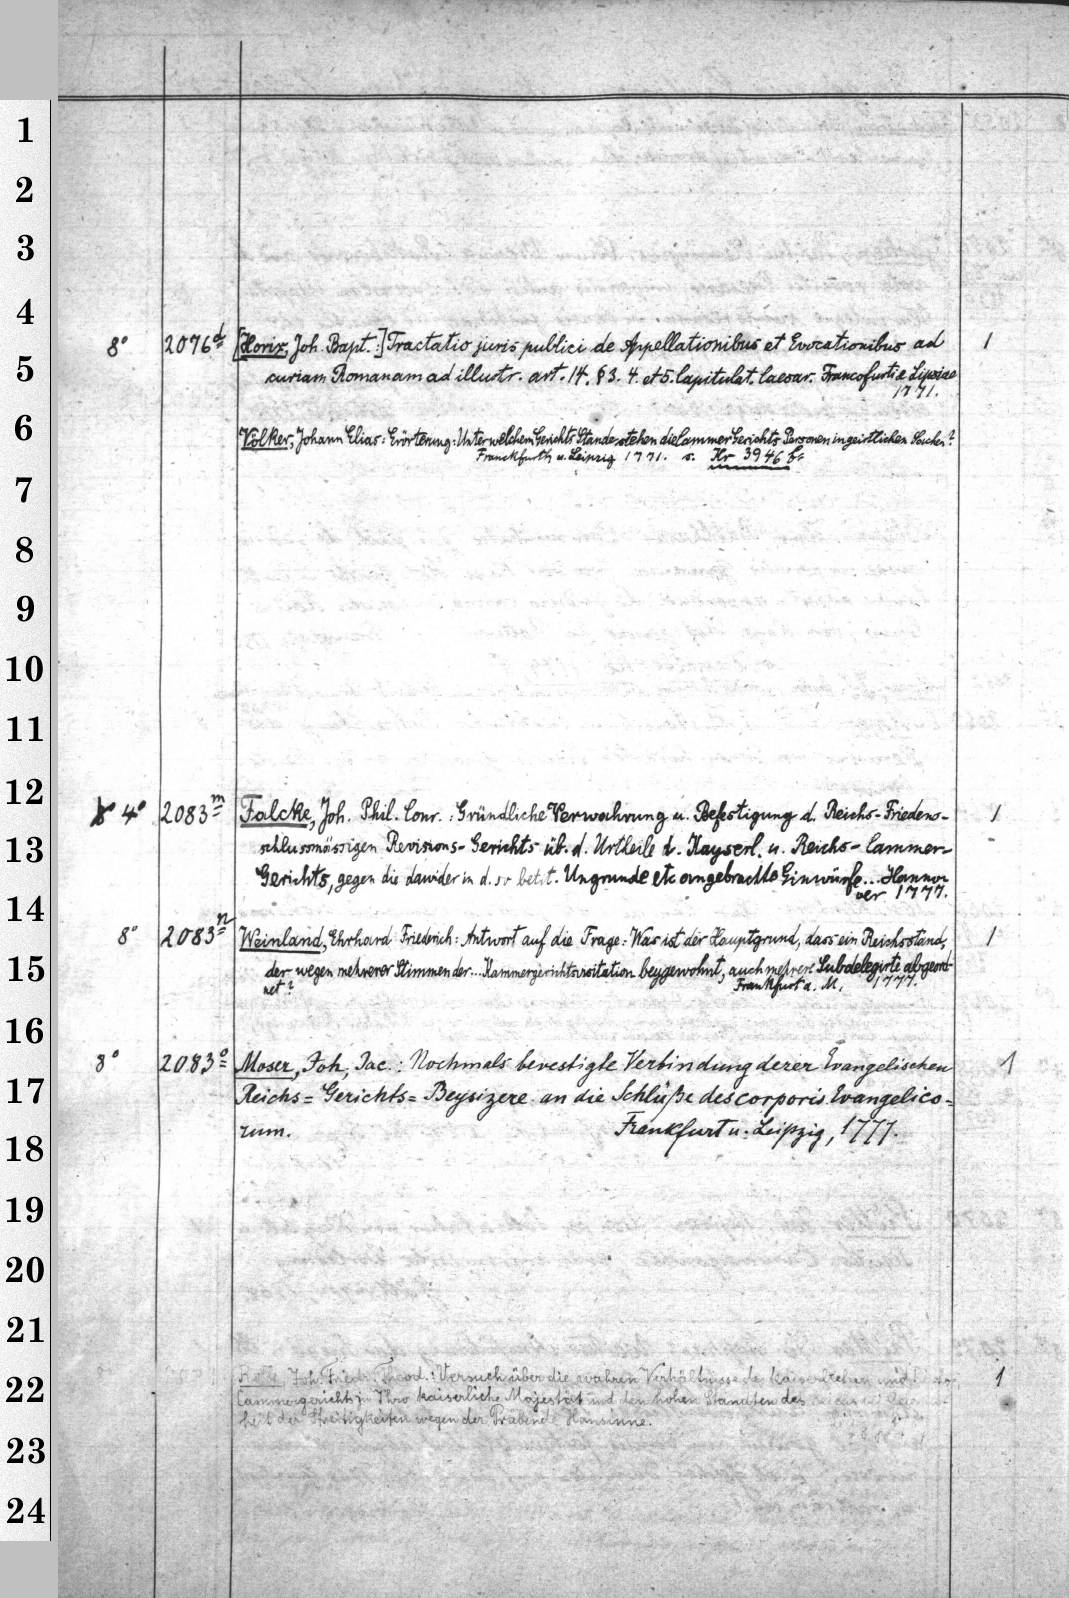 1
2
3
4
8° 2076d [Horix, Joh. Bapt.:] Tractatio juris publici de Appellationibus et Evocationibus ad 1
5
curiam Romanam ad illustr. art. 14. § 3. 4. et 5. Capitulat. Caesar. Francofurti & Lipsiae
1771.
6
Völker, Johann Elias: Erörterung: Unter welchem Gerichts Stande stehen die Cammer Gerichts Personen in geistlichen Sachen?
Franckfurth u. Leipzig 1771. s. Nr 3946 b.
7
8
9
10
11
12
4° 2083m Falcke, Joh. Phil. Conr.: Gründliche Verwahrung u. Befestigung d. Reichs-Friedens- 1
13
schlussmässigen Revisions-Gerichts üb. d. Urtheile d. Kayserl. u. Reichs-Cammer-
Gerichts, gegen die dawider in d. so betit. Ungrunde etc angebrachte Einwürfe... Hanno
ver 1777.
14
8° 2083n Weinland, Ehrhard Friederich: Antwort auf die Frage: Was ist der Hauptgrund, dass ein Reichsstand, 1
15
der wegen mehrerer Stimmen der... Kammergerichtsvisitation beygewohnt, auch mehrere Subdelegirte abgeord-
net? Frankfurt a. M., 1777.
16
8° 2083o Moser, Joh. Jac.: Nochmals bevestigte Verbindung derer Evangelischen 1
17
Reichs=Gerichts=Beysizere an die Schlüße des corporis Evangelico=
rum. Frankfurt u. Leipzig, 1777.
18
19
20
21
Joh. Friedr. Theod.: Versuch über die wahren Verhältnisse des kaiserlichen und 1
22
Cammergerichts zu Ihro kaiserliche Majestät und den hohen Ständten des
heit der Streitigkeiten wegen der Präbende Hansinne.
23
24